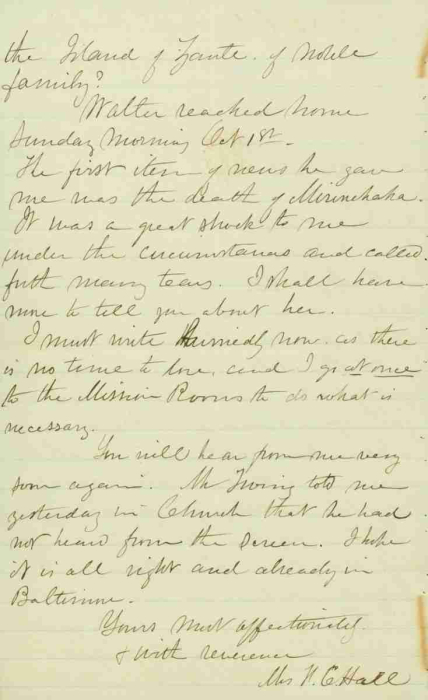 the Island of Zante. of noble
family?
Walter reached home
Sunday morning Oct 1st.
The first item of news he gave
me was the death of
It was a great shock to me
under the circumstances and called
forth many tears. I shall have
more to tell you about her.
I must write hurriedly now. as there
is no time to lose, and I go at once
to the Mission Rooms to do what is
necessary.
You will hear from me very
soon again. Mr Twing told me
yesterday in Church that he had
not heard from the Screen. I hope
it is all right and already in
Baltimore.
Yours most affectionately.
& with reverence
Mrs C Hall